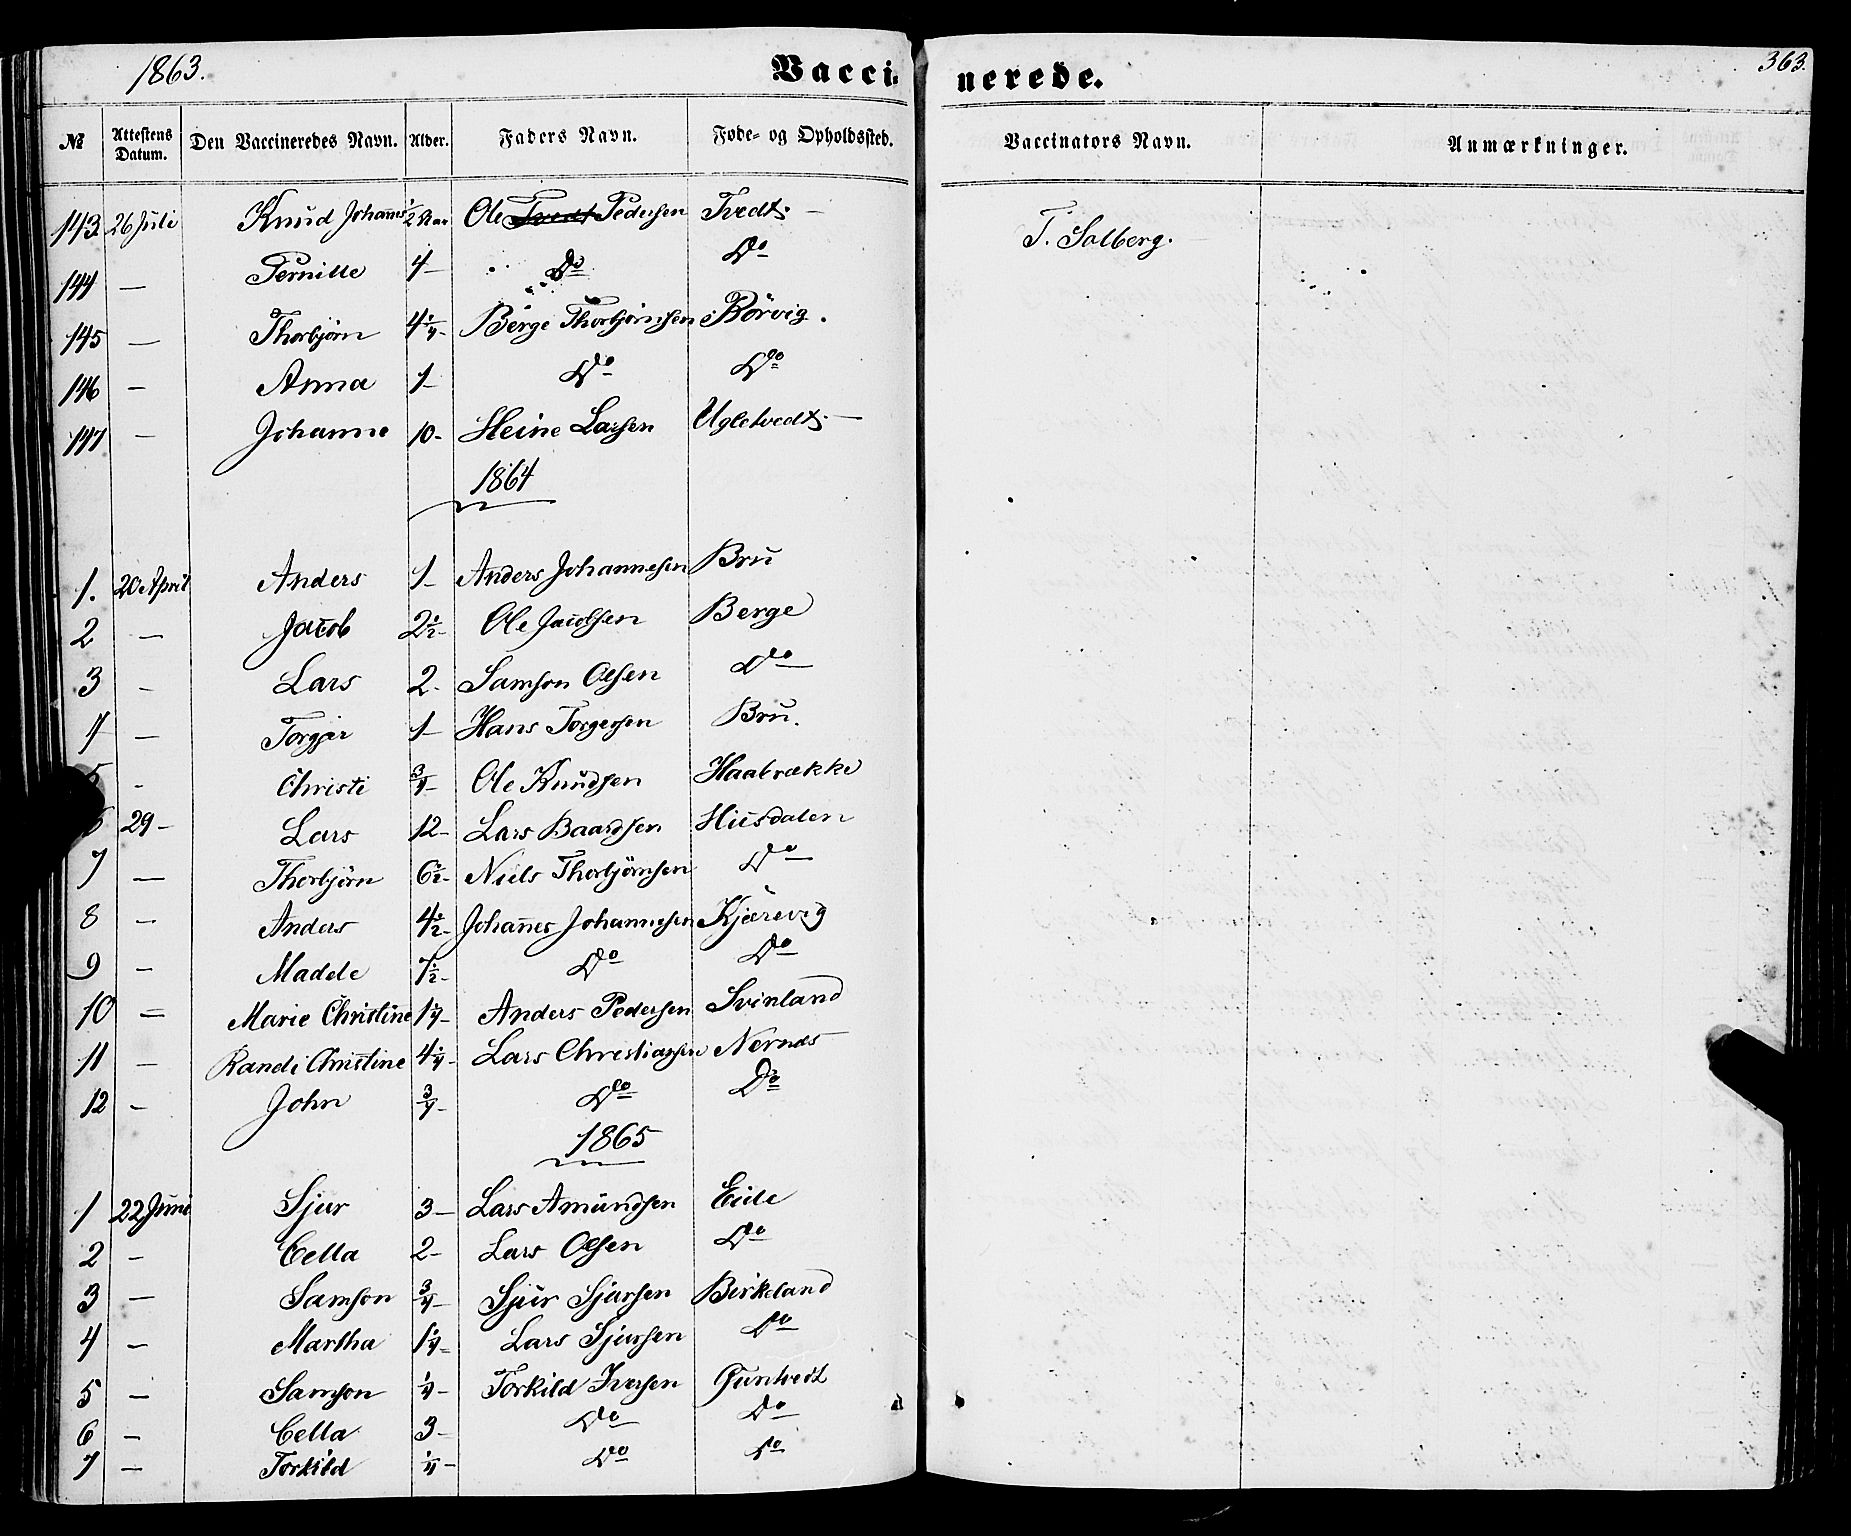 1863. Vacci- nerede. 363.
№ Attestens Datum. Den Vaccineredes Navn. Alder. Faders Navn. Føde- og Opholdssted. Vaccinators Navn. Anmærkninger.
143 26 Juli Knud Johannes ½ Aar Ole Tvedt Pedersen Tvedt. — T. Solberg.
144 — Pernille 4 — Do Do
145 — Thorbjörn 4¼ - Berge Thorbjörnsen Börvig.
146 — Anna 1 — Do Do
147 — Johanne 10 - Heine Larsen Ugletvedt. —
1864
1. 20 April Anders 1 — Anders Johannesen Bru
2 — Jacob 2½ - Ole Jacobsen Berge
3 — Lars 2 - Samson Olsen Do
4 — Torgjer 1 — Hans Torgersen Bru.
5 - Christi ¾ - Ole Knudsen Haabrække
6 29 — Lars 12 - Lars Baardsen Husdalen
7 — Thorbjörn 6½ - Niels Thorbjörnsen Do
8 — Anders 4½ - Johannes Johannesen Kjærevig
9 — Madele 7½ - Do Do
10 = Marie Christine 1¼ - Anders Pedersen Svinland
11 — Randi Christine 4¼ - Lars Christiansen Nernes
12 — John ¾ - Do Do
1865
1 22 Juni Sjur 3 — Lars Amundsen Eide
2 — Cella 2 - Lars Olsen Do
3 — Samson ¾ - Sjur Sjursen Birkeland
4 — Martha 1¼ - Lars Sjursen Do
5 — Samson ¼ - Torkild Iversen Guntvedt
6 — Cella 3 - Do Do
7 — Torkild ¼ - Do Do